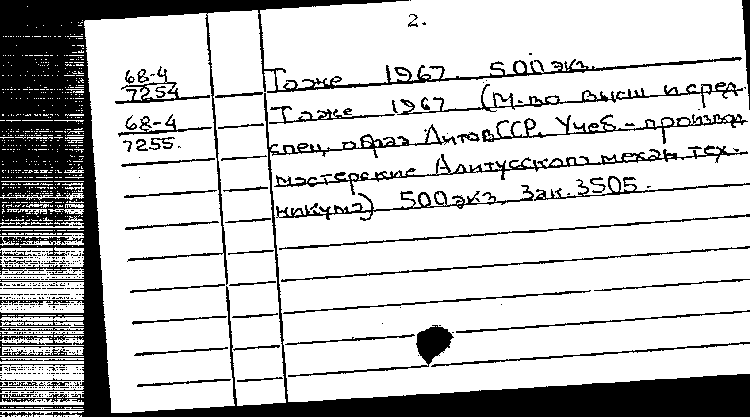 2.
68-4 Тоже 1967. 500 экз.
7254
68-4 Тоже 1967 (М-во высш и сред
7255. спец. образ ЛитовССР. Учеб.-производ
мастерские Алитусского механ. тех-
никума) 500 экз. Зак. 3505.